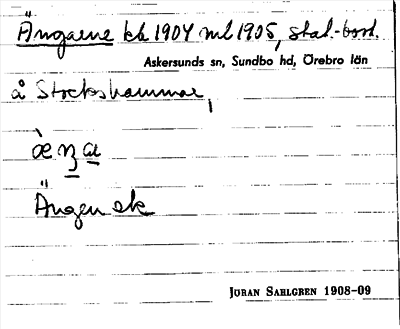 Ängarne kb 1904 ml 1905, skal.-bost.
Askersunds sn, Sundbo hd, Örebro län
å Stockshammar,
Ängen ek
JÖRAN SAHLGREN 1908-09